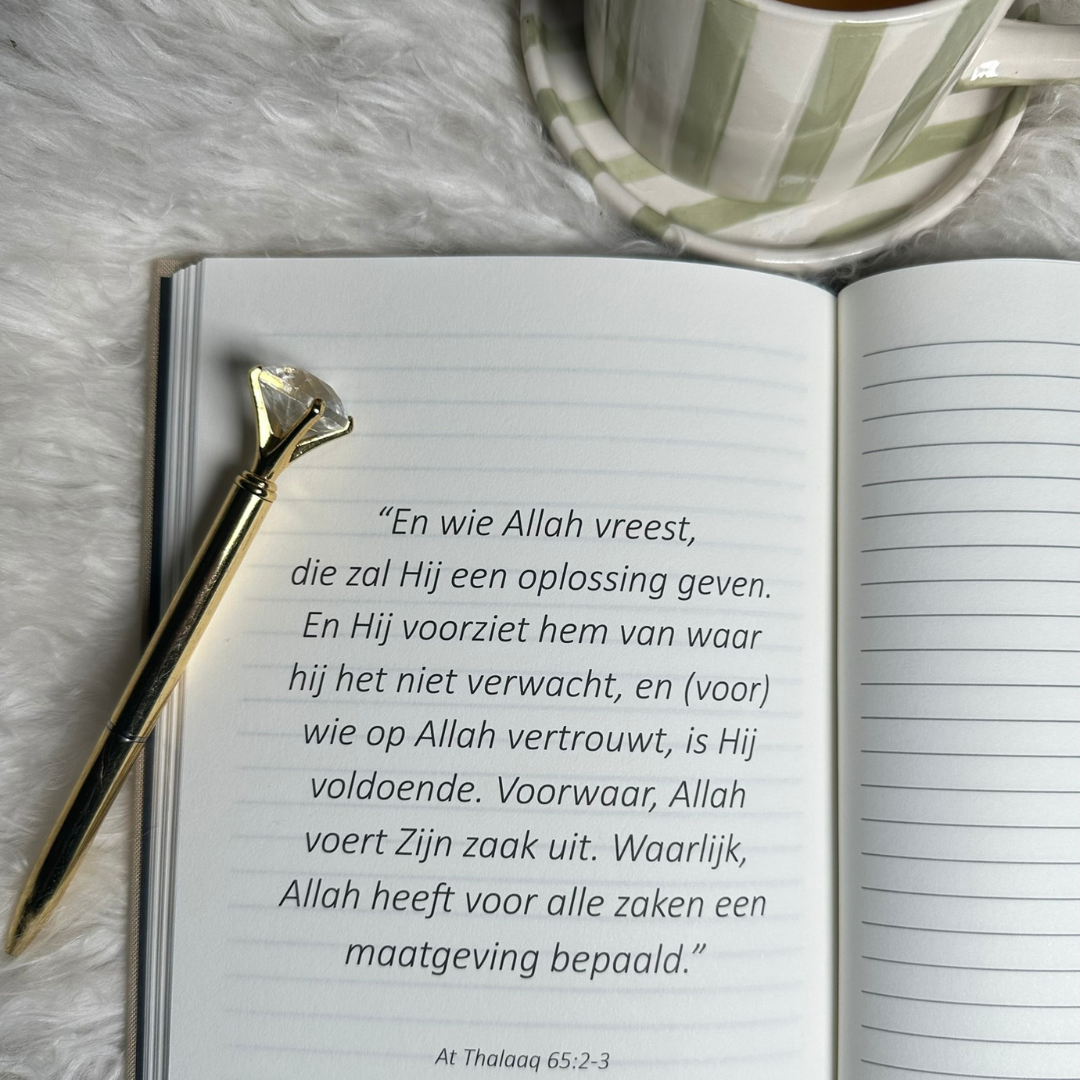 “En wie Allah vreest,
die zal Hij een oplossing geven.
En Hij voorziet hem van waar
hij het niet verwacht, en (voor)
wie op Allah vertrouwt, is Hij
voldoende. Voorwaar, Allah
voert Zijn zaak uit. Waarlijk,
Allah heeft voor alle zaken een
maatgeving bepaald.”
At Thalaaq 65:2-3